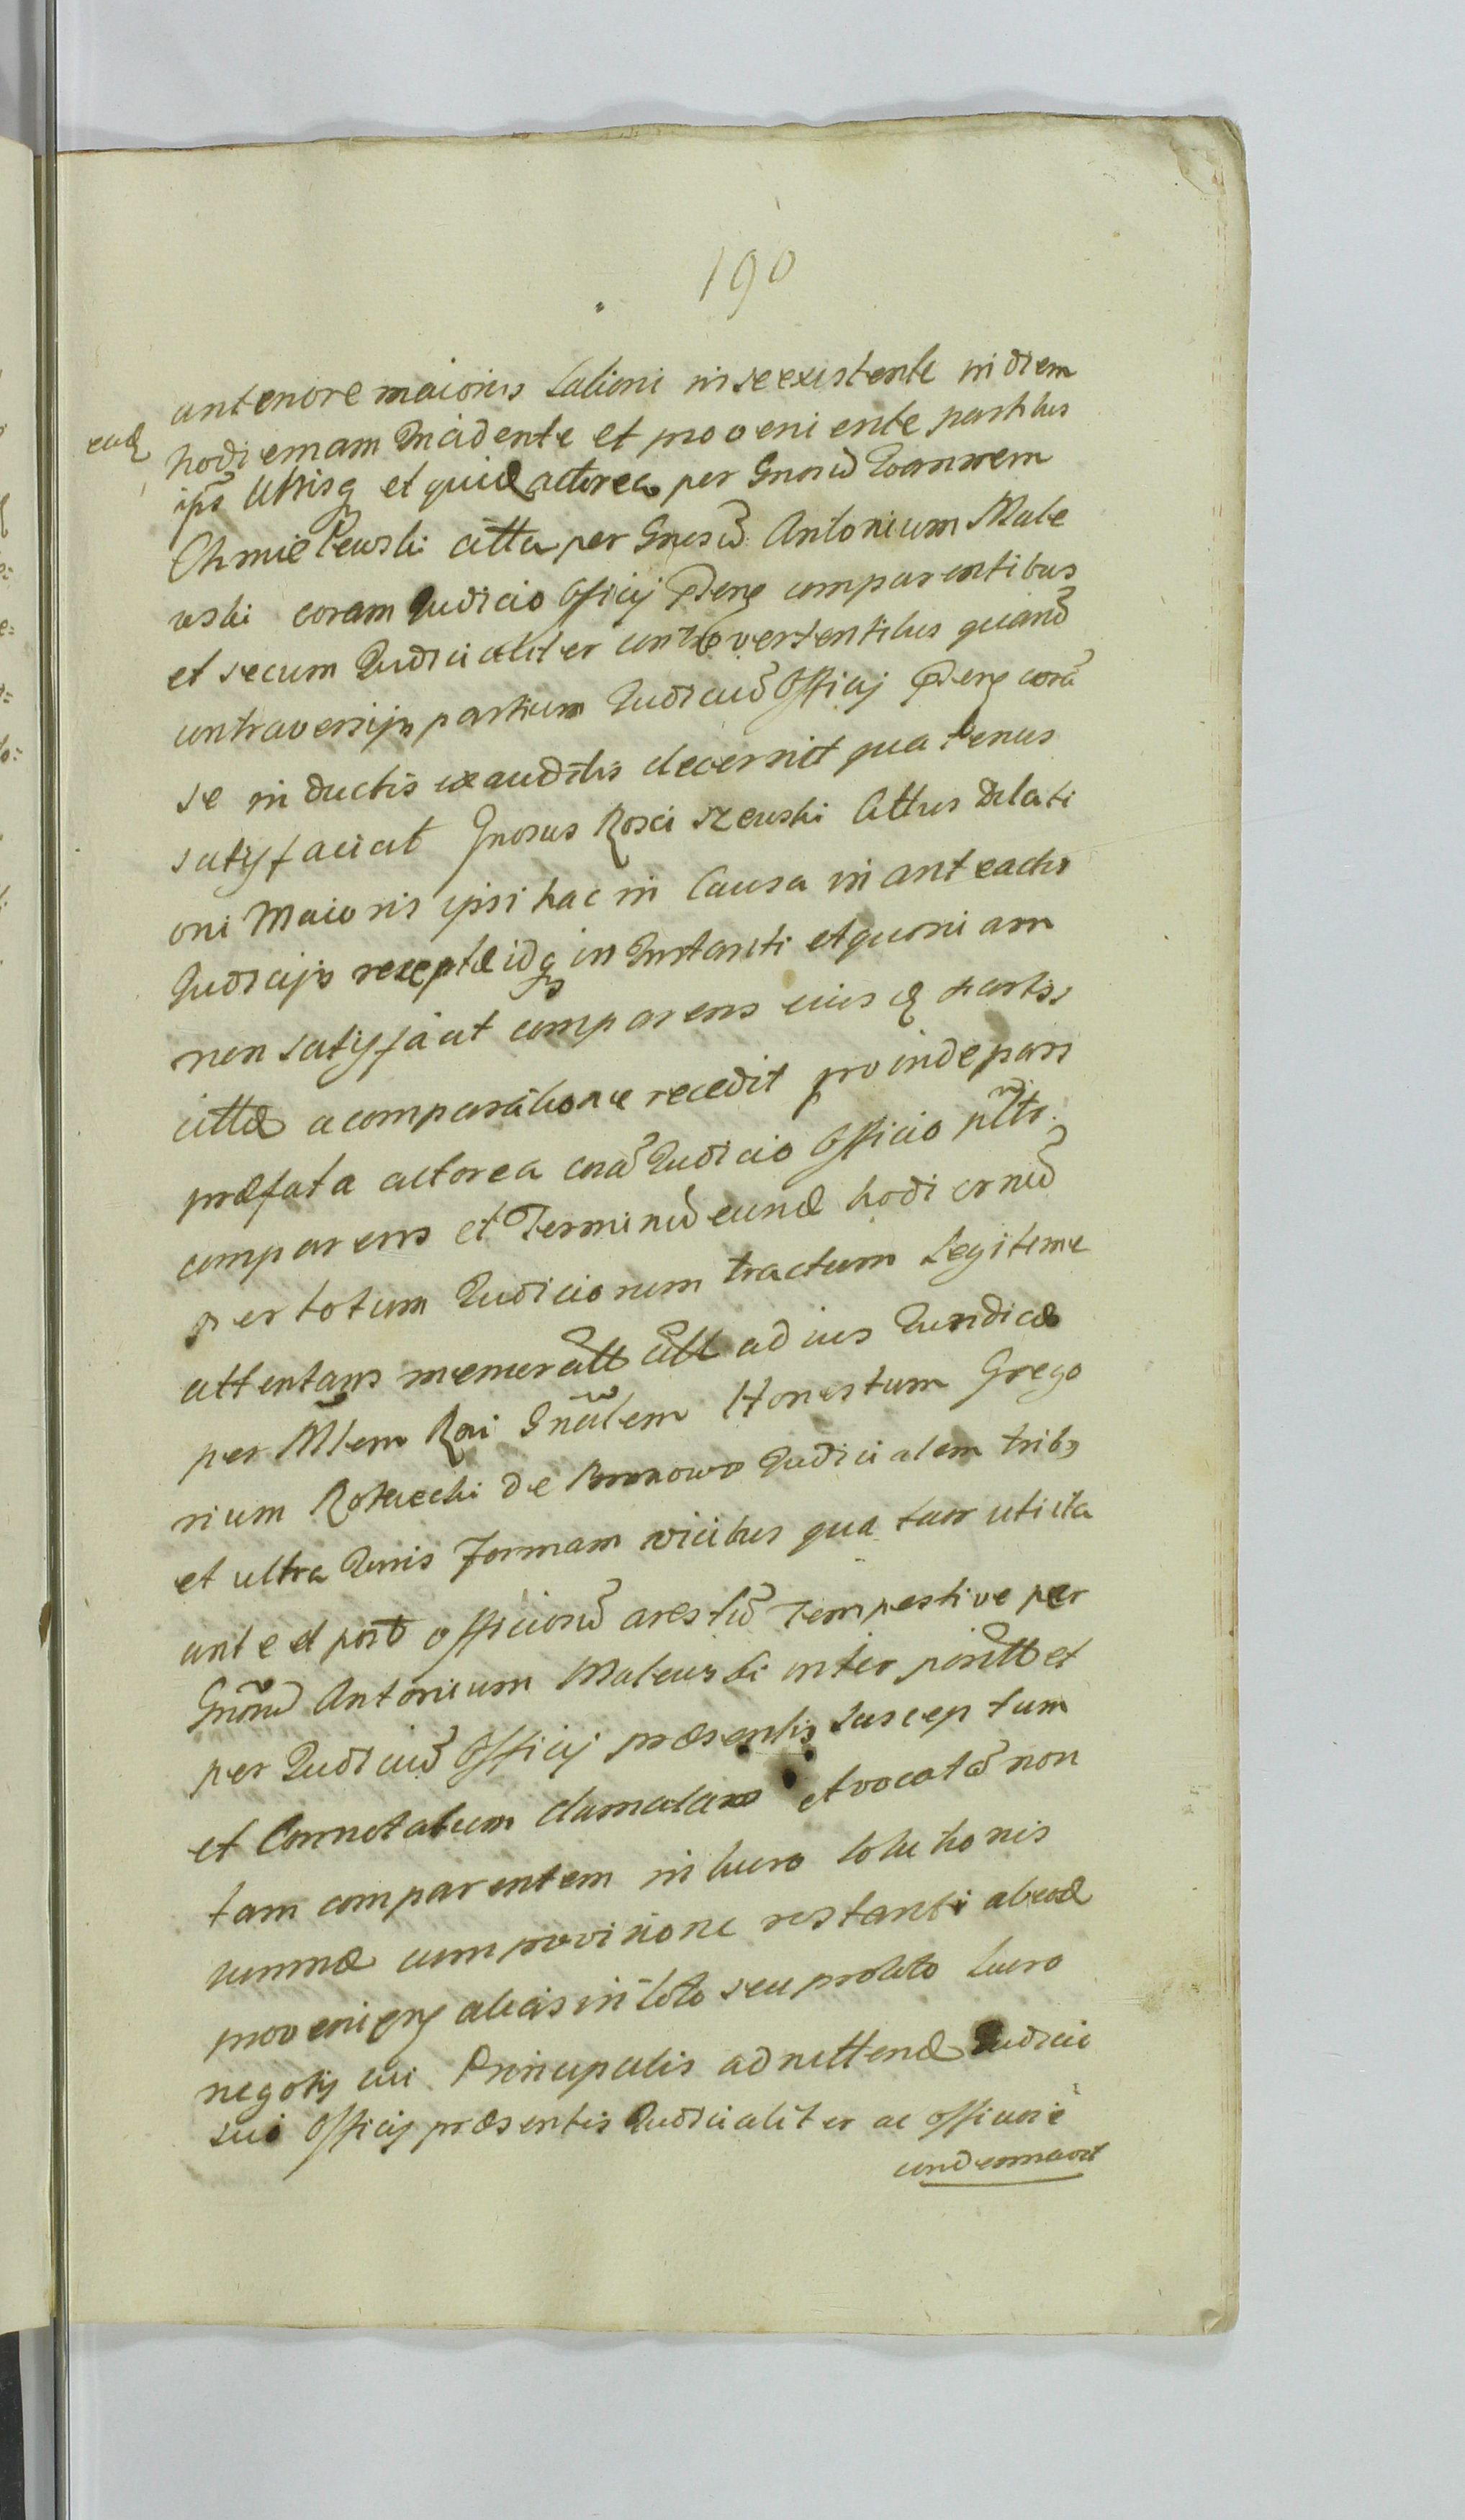 190
antenore maioris lationi inseexistente in diem
eadē hodiernam Incidente et proveniente partibus
ipīs Utrisq et quidē actorea per Gnosū Ioannem
Chmielewski citta per Gnosū Antonium Male
wski coram Iudicio Officij pteng comparentibus
et secum Iudicialiter controvertentibus quarū
controversijs partium Iudiciū Officij pteng corā
se inductis exauditis decernit quatenus
satisfaciat Gnosus Rosciszewski Cittus Dilati
oni Maioris ipsi hac in Causa in anteactis
Iudicijs receptæ idq in Instanti et quoniam
non satisfacit comparens eiusdē partis
cittæ a comparitione recedit proinde pars
præfata actorea corā Iudicio Officio pntr.
comparens et Terminū eundē hodiernū
per totum Iudiciorum tractum Legitime
attentans memoratt citt ad ius Iuridicæ
per Mlem Rni Gnālem Honestum Grego
rium Rotnecki de Bronowo Iudicialem tribs
et ultra Iuris formam vicibus quatuor uti ita
ante et post officiosū arestū Tempestive per
Gnosū Antonium Malewski interpositt et
per Iudiciū Officij præsentis susceptum
et Connotatum clamatam et vocatā non
tam comparentem in lucro solutionis
summæ cum provisione restanti ab eadē
proveniens alias in toto seu prolato lucro
negotij sui Principalis admittendē Iudicio
suo Officij præsentis Iudicialiter ac officiose
condemnavit